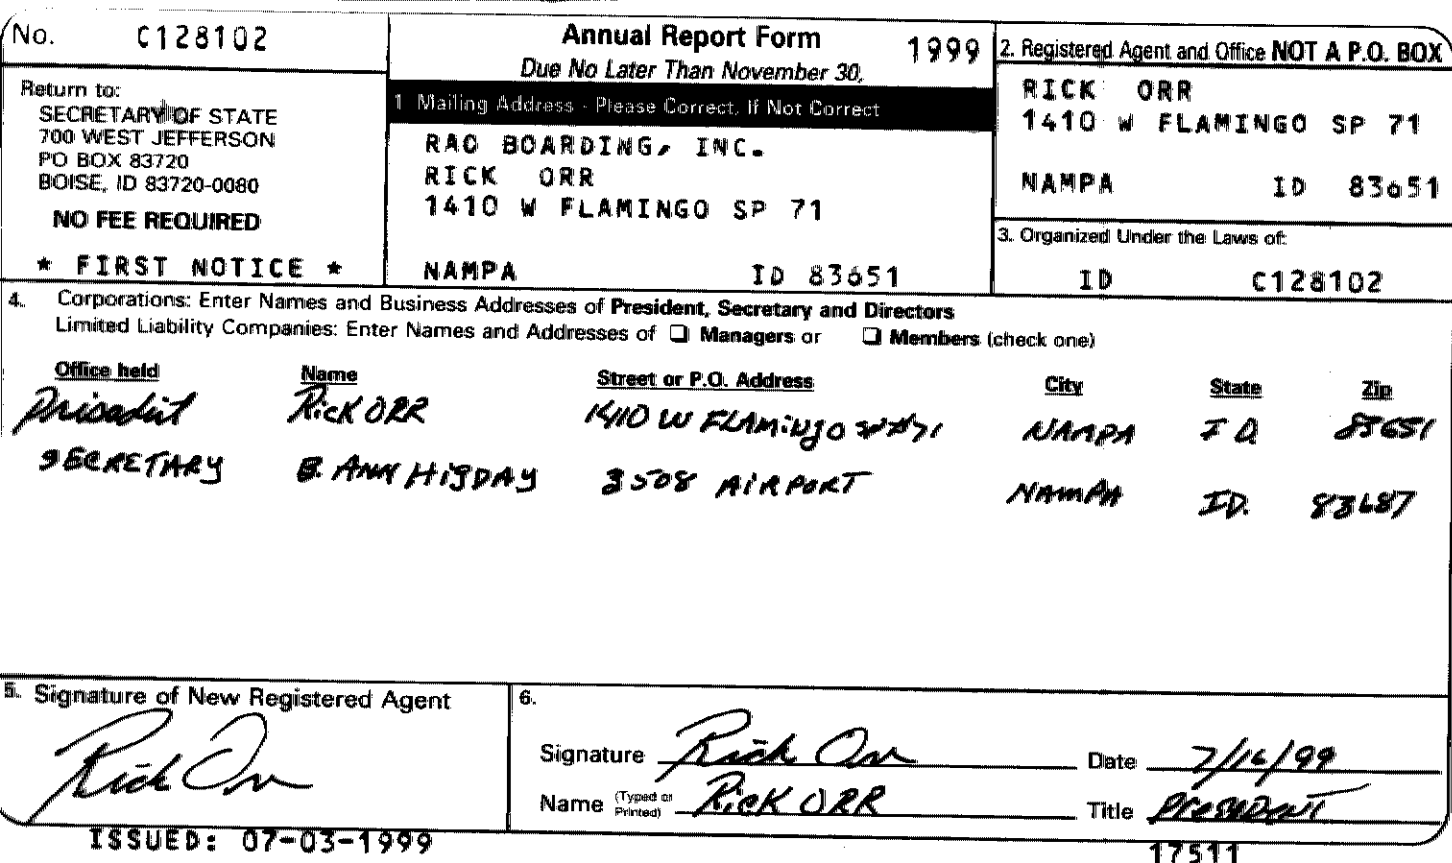 No. C128102
Return to:
SECRETARY OF STATE
700 WEST JEFFERSON
PO BOX 83720
BOISE, ID 83720-0080
NO FEE REQUIRED
* FIRST NOTICE *
Annual Report Form 1999
Due No Later Than November 30,
1 Mailing Address - Please Correct, If Not Correct
RAO BOARDING, INC.
RICK ORR
1410 W FLAMINGO SP 71
NAMPA ID 83651
2. Registered Agent and Office NOT A P.O. BOX
RICK ORR
1410 W FLAMINGO SP 71
NAMPA ID 83651
3. Organized Under the Laws of:
ID C128102
4. Corporations: Enter Names and Business Addresses of President, Secretary and Directors
Limited Liability Companies: Enter Names and Addresses of ❑ Managers or ❑ Members (check one)
Office held Name Street or P.O. Address City State Zip
Rick ORR 1410 W FLAMINgO NAMPA ID 83651
SECRETARY B. ANN HIgDAY 3508 AIRPORT NAMPA ID. 83687
5. Signature of New Registered Agent
Rick Orr
6.
Signature Rick Orr Date 7/16/99
Name (Typed or Printed) Rick ORR Title President
ISSUED: 07-03-1999
17511